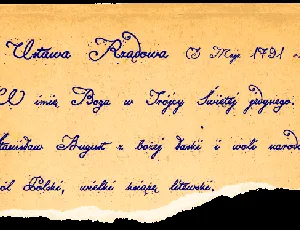 Ustawa Rządowa (3 Maja 1791
W imię Boga w Trójcy Świętej jedynego.
Stanisław August z bożej łaski i woli narodu
ról Polski, wielki książę litewski.